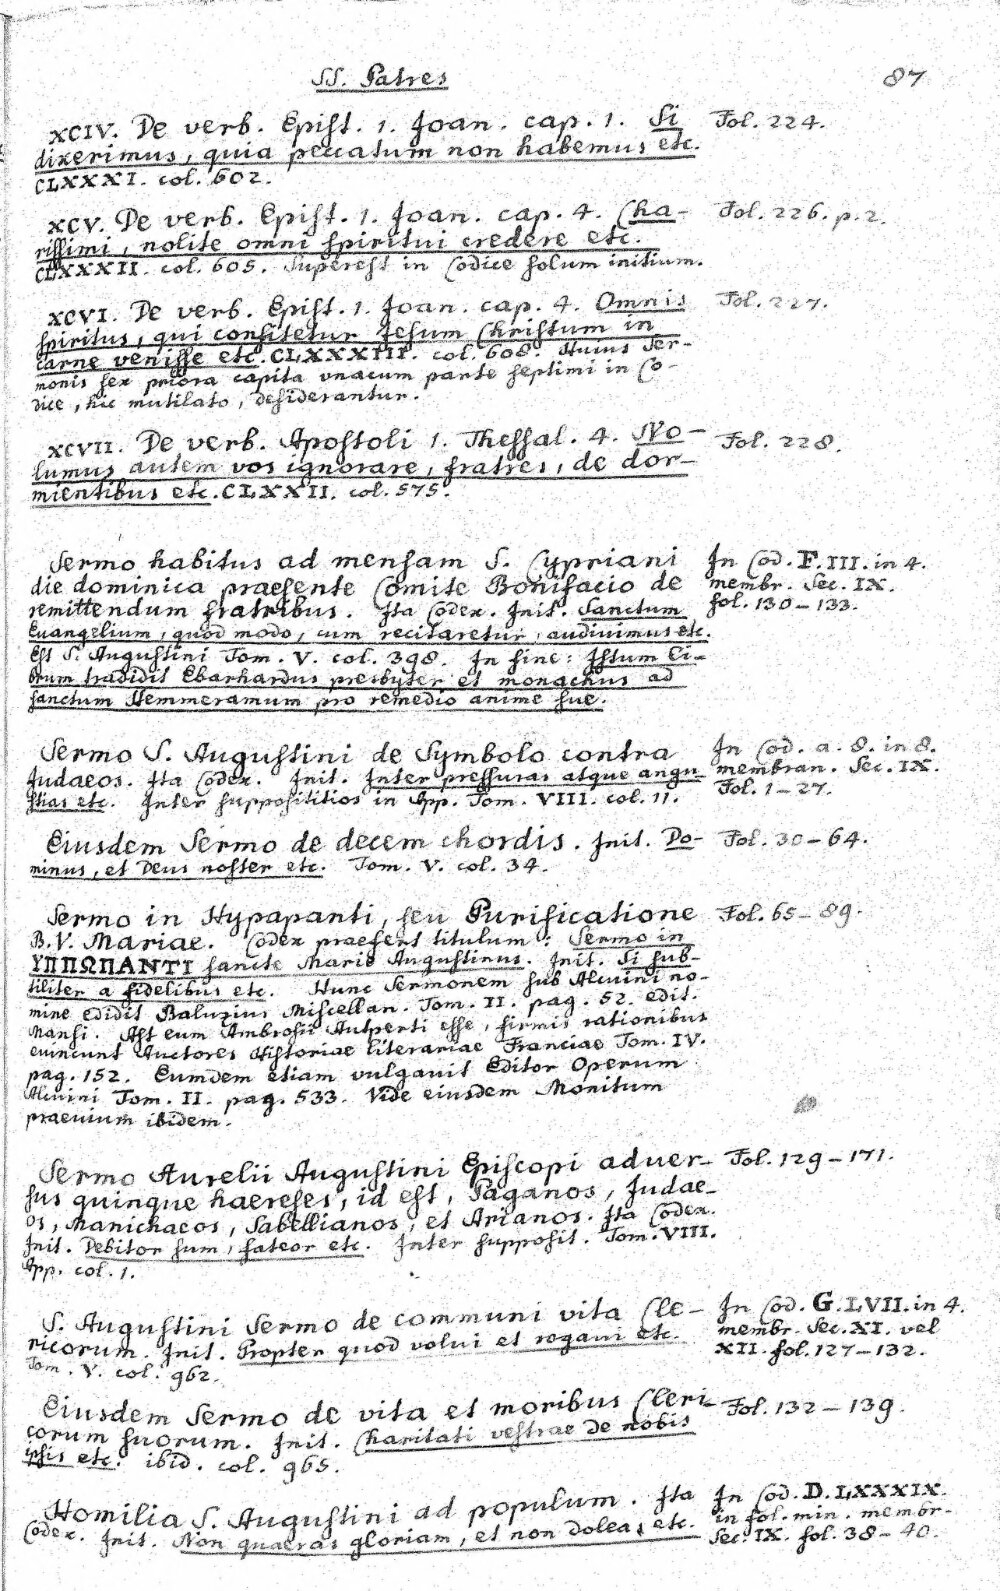 SS. Patres 87
XCIV. De verb. Epist. 1. Joan. cap. 1. Si Fol. 224.
dixerimus, quia peccatum non habemus etc.
CLXXXI. col. 602.
XCV. De verb. Epist. 1. Joan. cap. 4. Cha- Fol. 226. p. 2.
rissimi, nolite omni spiritui credere etc.
CLXXXII. col. 605. Superest in Codice solum initium.
XCVI. De verb. Epist. 1. Joan. cap. 4. Omnis Fol. 227.
spiritus, qui confitetur Jesum Christum in
carne venisse etc. CLXXXIII. col. 608. Huius Ser-
monis sex priora capita vnacum parte septimi in Co-
dice, hic mutilato, desiderantur.
XCVII. De verb. Apostoli 1. Thessal. 4. No- Fol. 228.
lumus autem vos ignorare, fratres, de dor-
mientibus etc. CLXXII. col. 575.
Sermo habitus ad mensam S. Cypriani In Cod. F. III. in 4.
die dominica praesente Comite Bonifacio de membr. Sec. IX.
remittendum fratribus. Ita Codex. Init. Sanctum fol. 130-133.
Euangelium, quod modo, cum recitaretur, audiuimus etc.
Est S. Augustini Tom. V. col. 398. In fine: Istum Li-
brum tradidit Ebarhardus presbyter et monachus ad
sanctum Hemmeramum pro remedio anime sue.
Sermo S. Augustini de Symbolo contra In Cod. a. 8. in 8.
Judaeos. Ita Codex. Init. Inter pressuras atque angu membran. Sec. IX.
stias etc. Inter supposititios in App. Tom. VIII. col. 11. Fol. 1-27.
Eiusdem Sermo de decem chordis. Init. Do- Fol. 30-64.
minus, et Deus noster etc. Tom. V. col. 34.
Sermo in Hypapanti, seu Purificatione Fol. 65-89.
B. V. Mariae. Codex praefert titulum: Sermo in
ΥΠΠΩΠΑΝΤΙ sancte Marie Augustinus. Init. Si sub-
tiliter a fidelibus etc. Hunc Sermonem sub Alcuini no-
mine edidit Baluzius Miscellan. Tom. II. pag. 52. edit.
Mansi. Ast eum Ambrosii Autperti esse, firmis rationibus
euincunt Auctores Historiae literariae Franciae Tom. IV.
pag. 152. Eumdem etiam vulgauit Editor Operum
Alcuini Tom. II. pag. 533. Vide eiusdem Monitum
praeuium ibidem.
Sermo Aurelii Augustini Episcopi aduer- Fol. 129-171.
sus quinque haereses, id est, Paganos, Judae-
os, Manichaeos, Sabellianos, et Arianos. Ita Codex.
Init. Debitor sum, fateor etc. Inter supposit. Tom. VIII.
App. col. 1.
S. Augustini Sermo de communi vita Cle- In Cod. G. LVII. in 4.
ricorum. Init. Propter quod volui et rogaui etc. membr. Sec. XI. vel
Tom. V. col. 962. XII. fol. 127-132.
Eiusdem Sermo de vita et moribus Cleri- Fol. 132-139.
corum suorum. Init. Charitati vestrae de nobis
ipsis etc. ibid. col. 965.
Homilia S. Augustini ad populum. Ita In Cod. D. LXXXIX.
Codex. Init. Non quaeras gloriam, et non doleas etc. in fol. min. membr.
Sec. IX. fol. 38-40.